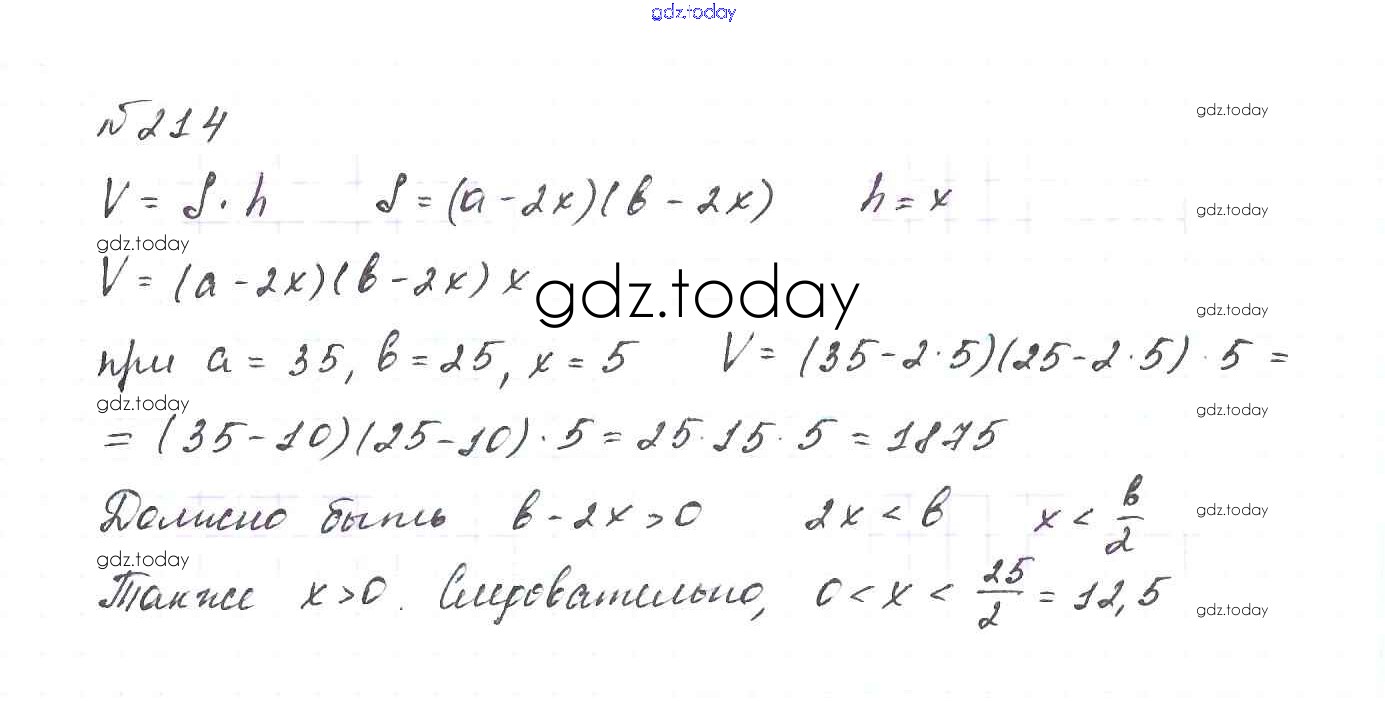 gdz.today
№ 214
gdz.today
V = S · h   S = (a - 2x)(b - 2x)   h = x
gdz.today
gdz.today
V = (a - 2x)(b - 2x) x
gdz.today
gdz.today
при a = 35, b = 25, x = 5   V = (35 - 2 · 5)(25 - 2 · 5) · 5 =
gdz.today
gdz.today
= (35 - 10)(25 - 10) · 5 = 25 · 15 · 5 = 1875
Должно быть b - 2x > 0   2x < b   x < b/2
gdz.today
gdz.today
Также x > 0. Следовательно, 0 < x < 25/2 = 12,5
gdz.today